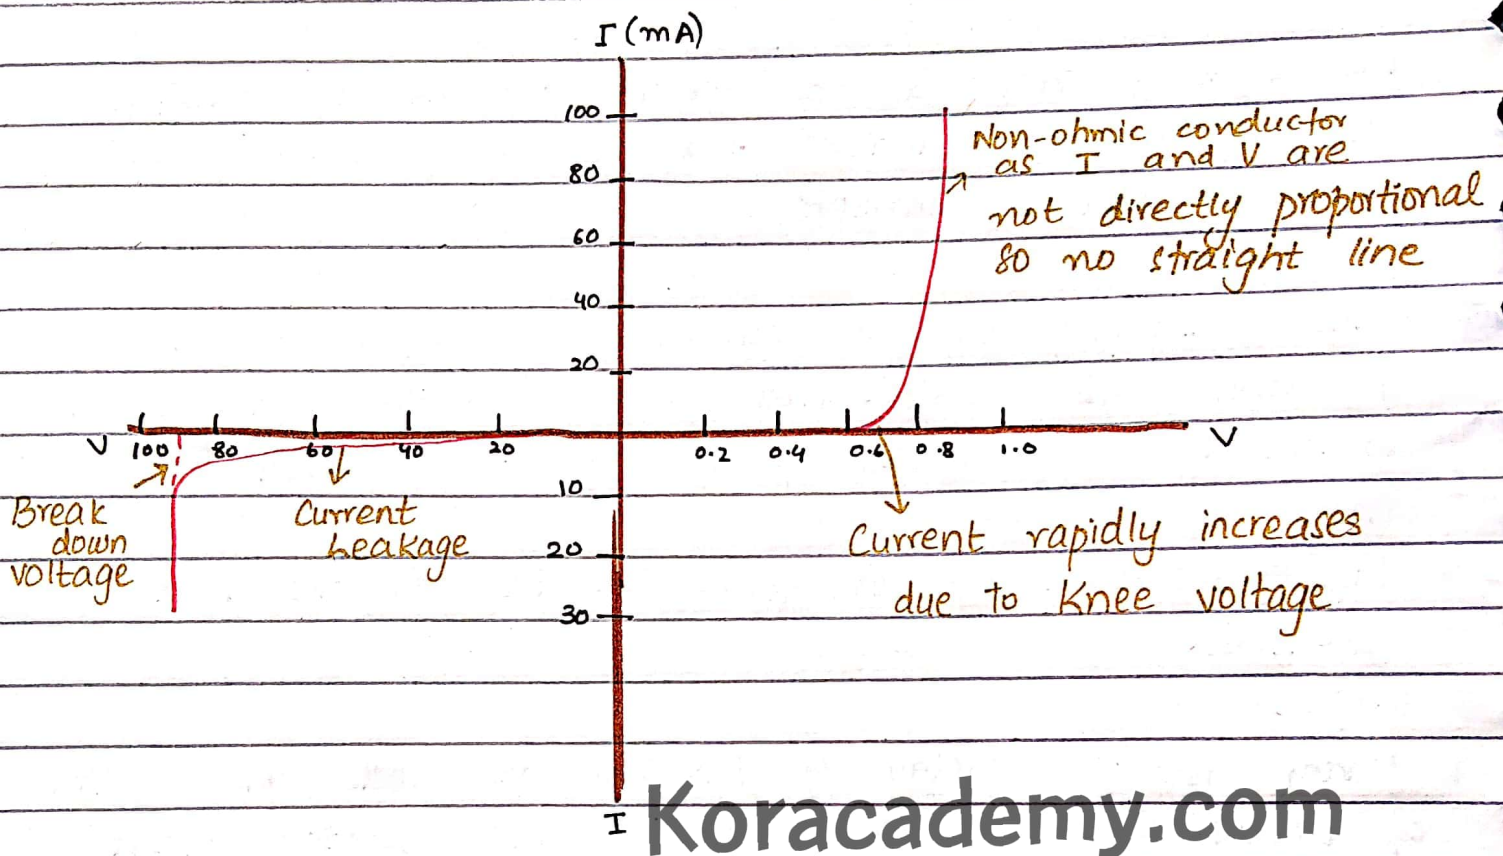 I (mA)
100
80
60
40
20
Non-ohmic conductor
as I and V are
not directly proportional
so no straight line
V 100 80 60 40 20
0.2 0.4 0.6 0.8 1.0 V
10
20
30
Break
down
voltage
Current
Leakage
Current rapidly increases
due to Knee voltage
I
Koracademy.com